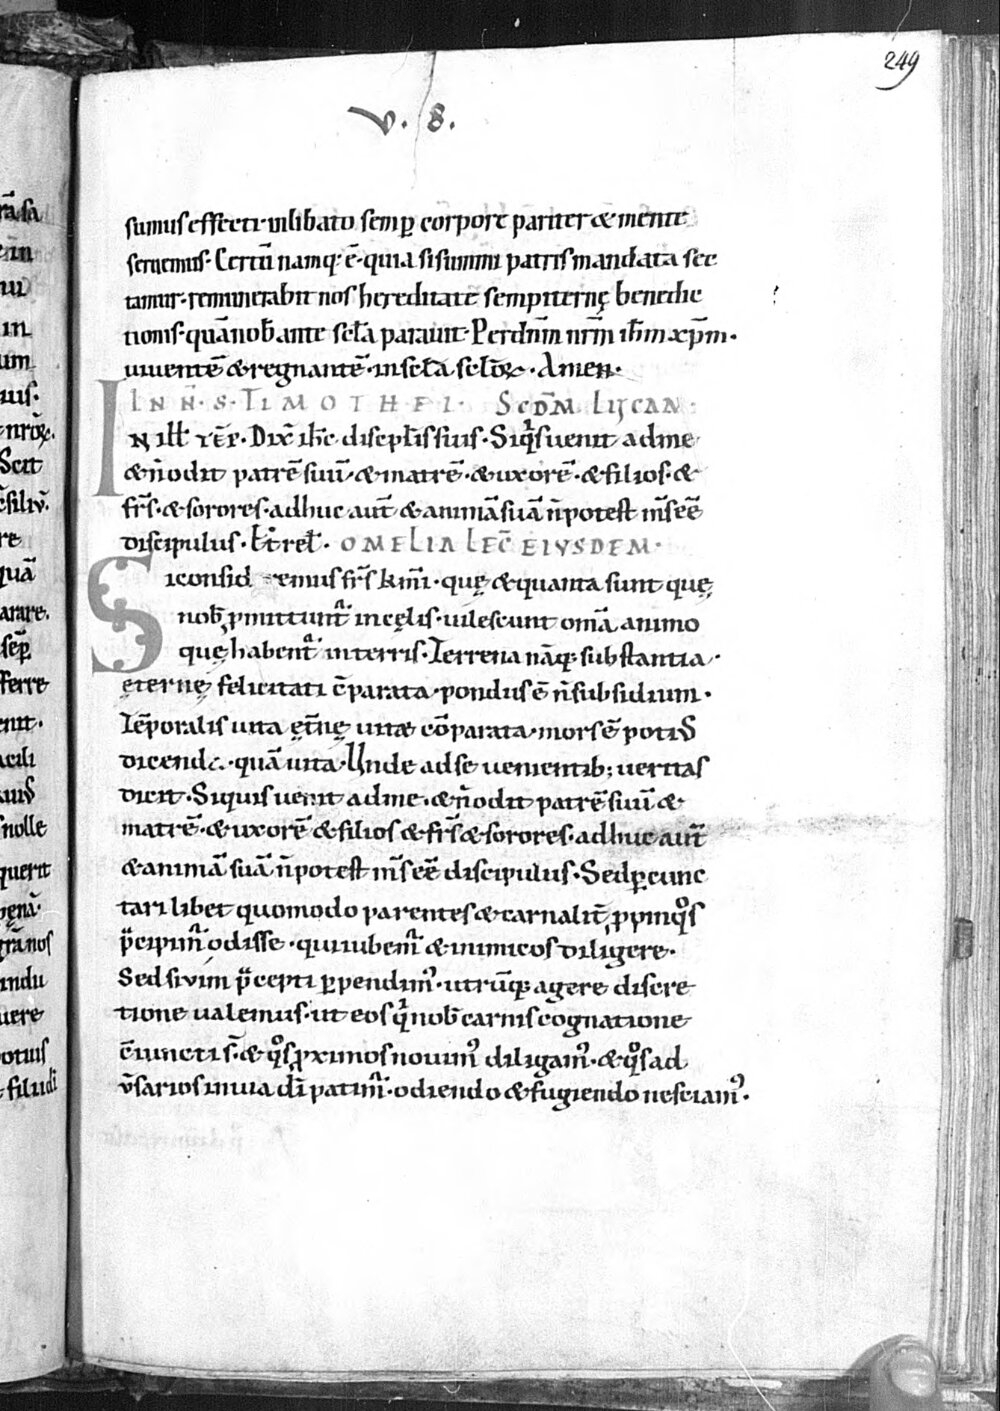 249
v. 8.
sumus effecti· inlibato semꝑ corpore pariter & mente
seruemus· Certū namq; ē· quia si summi patris mandata sec
tamur· remunerabit nos hereditatē sempiternę benedic
tionis· quā nob̄ ante scl̄a parauit· Per dn̄m nr̄m ih̄m xp̄m·
uiuentē & regnantē· in scl̄a scl̄oꝝ· Amen·
IN N̄· S· TIMOTHEI· SCD̄M LUCAN·
IN ill̄ tēr̄· Dix̄ ih̄c discipl̄is suis· Siq̇s uenit ad me
& n̄ odit patrē suū· & matrē· & uxorē· & filios· &
fr̄s· & sorores· adhuc aut̄ & animā suā n̄ potest m̄s eē
discipulus· & rel̄· OMELIA LEC̄ EIUSDEM·
Si consid remus fr̄s km̄i· quę & quanta sunt quę
nob̄ ꝓmittunt᷑ in cęlis· uilescunt om̄a animo
quę habent᷑ in terris· Terrena nāq; substantia·
ęternę felicitati c̄parata· pondus ē n̄ subsidium·
Tēporalis uita ęt̄nę uitae cōparata· mors ē potiꝰ
dicenda· quā uita· Unde ad se uenientib; ueritas
dicit· Si quis uenit ad me· & n̄ odit patrē suū &
matrē· & uxorē & filios & fr̄s & sorores· adhuc aut̄
& animā suā n̄ potest m̄s eē discipulus· Sed ꝑcunc
tari libet quomodo parentes & carnalit̄ ꝓpinqͦs
p̄cipim᷑ odisse· qui iubem᷑ & inimicos diligere·
Sed si uim p̄cepti ꝑpendimꝰ· utrūq; agere discre
tione ualemus· ut eos q̇ nob̄ carnis cognatione
c̄iuncti s̄· & qͦs ꝓximos nouimꝰ diligamꝰ· & qͦs ad
v̄sarios in uia dī patim᷑· odiendo & fugiendo nesciamꝰ·